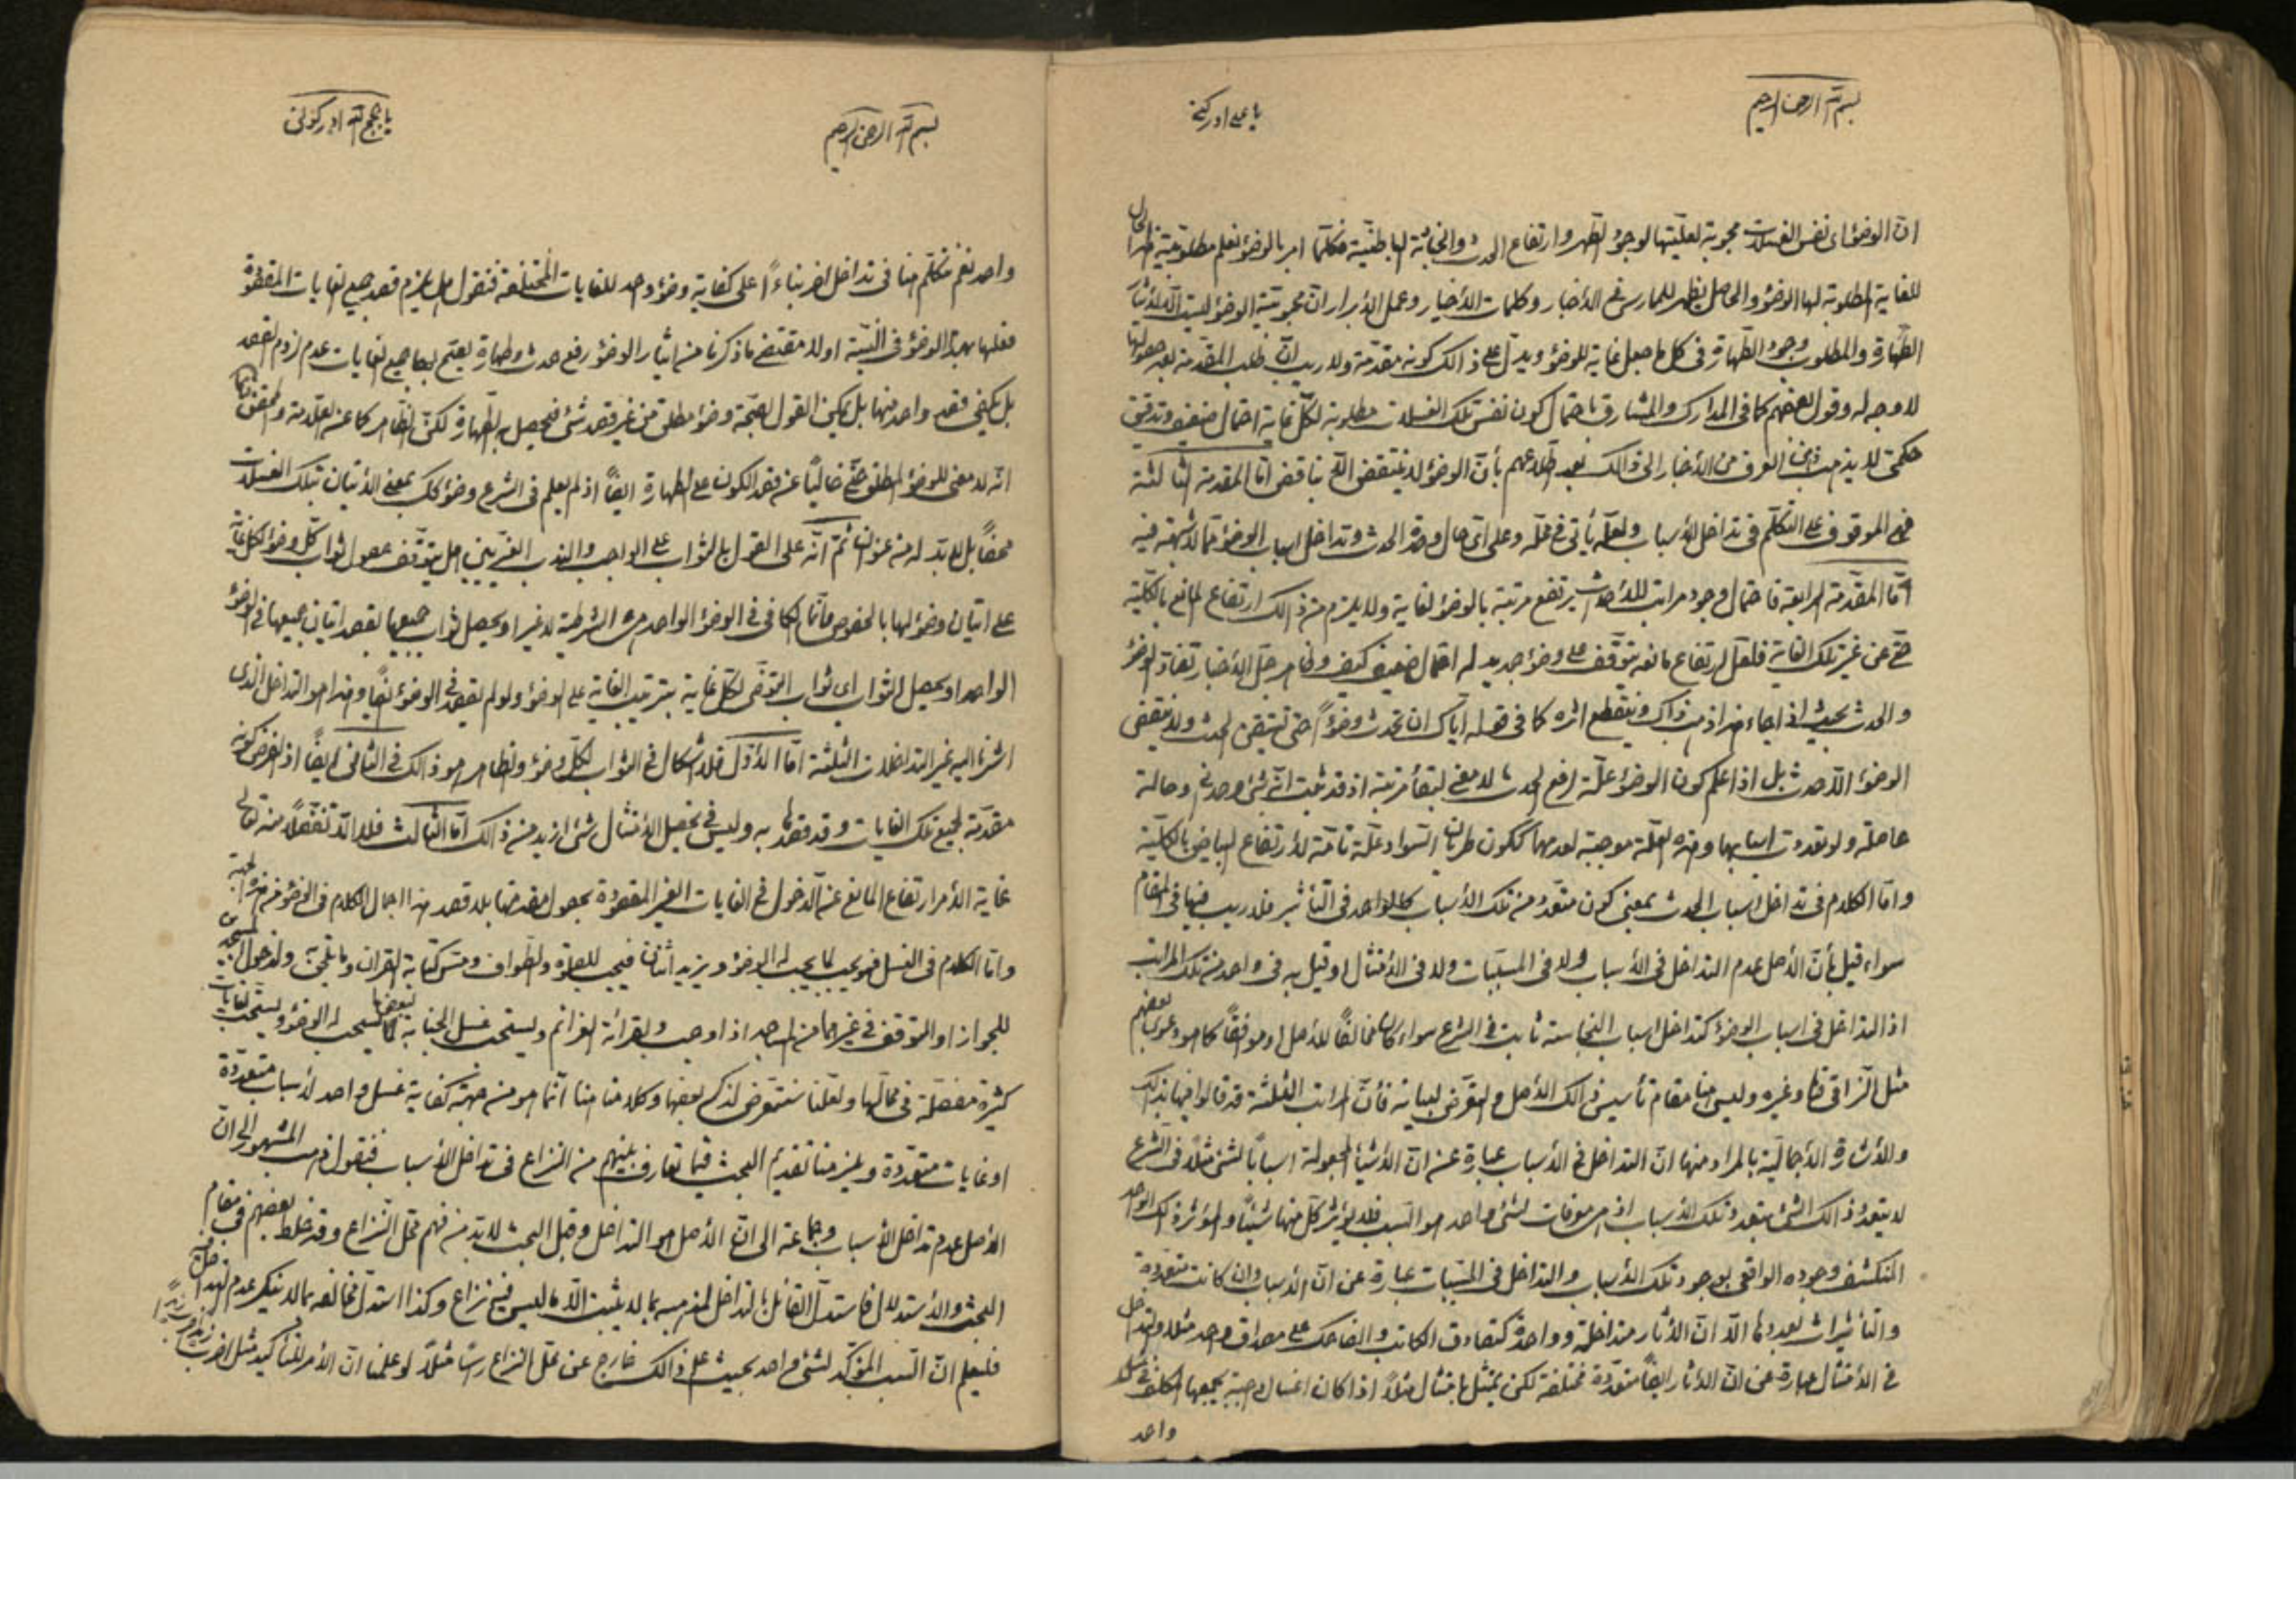 بسم الله الرحمن الرحيم
يا على ادركنى
ان الوضوء اى نفس الغسلات محبوبة لعليتها لوجود الطهر وارتفاع الحدث والخباثة الباطنية فكلما امر بالوضوء نعلم مطلوبية
للغاية المطلوبة لها الوضوء والحاصل يظهر للممارس فى الأخبار وكلمات الأخيار وعمل الأبرار ان محبوبية الوضوء ليست الا لايثار
الطهارة والمطلوب وجود الطهارة فى كل ما جعل غاية للوضوء ويدل على ذالك كونه مقدمة ولا ريب ان طلب المقدمة بعد حصولها
لا وجه له وقول بعضهم كما فى المدارك والمشارق باحتمال كون نفس تلك الغسلات مطلوبة لكل غاية احتمال ضعيف وتدقيق
حكمى لا يذهب ذهن العرف من الأخبار الى ذالك بعد اطلاعهم بأن الوضوء لا ينتقض الا بناقض اما المقدمة الثالثة
فهى الموقوف على التكلم فى تداخل الأسباب ولعله يأتى فى محله وعلى اى حال وحدة الحدث وتداخل اسباب الوضوء مما لا شبهة فيه
اما المقدمة الرابعة فاحتمال وجود مراتب للأحداث يرتفع مرتبة بالوضوء لغاية ولا يلزم من ذالك ارتفاع المانع بالكلية
حتى عن غير تلك الغاية فلعل ارتفاع مانعه يتوقف على وضوء جديد له احتمال ضعيف كيف وظاهر جل الأخبار تضاد الوضوء
والحدث بحيث اذا جاء هذا ذهب ذاك وينقطع اثره كما فى قوله اياك ان تحدث وضوءً حتى تستيقن الحدث ولا ينقض
الوضوء الا حدث بل اذا علم كون الوضوء علة لرفع الحدث لا معنى لبقاء مرتبة اذ قد ثبت انه شئ وحدانى وحالة
حاصلة ولو تعددت اسبابها وهذه العلة موجبة لعدمها ككون طريان السواد علة تامة لأرتفاع البياض بالكلية
واما الكلام فى تداخل اسباب الحدث بمعنى كون متعدد من تلك الأسباب كالواحد فى التأثير فلا ريب فيها فى المقام
سواء قيل بأن الأصل عدم التداخل فى الأسباب ولا فى المسببات ولا فى الأمتثال او قيل به فى واحد من تلك المراتب
اذ التداخل فى اسباب الوضوء كتداخل اسباب النجاسة ثابت فى الشرع سواء كان مخالفاً للأصل او موافقاً كما هو دعوى بعضهم
مثل النراقى وغيره وليس هنا مقام تأسيس ذالك الأصل والتعرض لبيانه فأن المراتب الثلثة قد قالوا فيها بذلك
وللأشارة الأجمالية بالمراد منها ان التداخل فى الأسباب عبارة عن ان الأشياء المجعولة اسباباً لشئ مثلاً فى الشرع
لا يتعدد ذالك الشئ بتعدد تلك الأسباب اذ هى معرفات لشئ واحد هو السبب فلا يؤثر كل منها شيئاً والمؤثر ذلك الواحد
المنكشف وجوده الواقعى بوجود تلك الأسباب والتداخل فى المسببات عبارة عن ان الأسباب وان كانت متعددة
والتأثيرات بعددها الا ان الأثار متداخلة وواحدة كتصادق الكاتب والضاحك على مصداق واحد مثلا والتداخل
فى الأمتثال عبارة عن ان الأثار ايضاً متعددة مختلفة لكن يمتثل بامتثال مثلاً اذا كان اغسال واجبة بجميعها اكتفى بغسل
واحد
بسم الله الرحمن الرحيم
يا حجج الله ادركونى
واحد نعم نتكلم هنا فى تداخل اخر بناءً على كفاية وضوء واحد للغايات المختلفة فنقول هل يلزم قصد جميع الغايات المقصودة
فعلها بهذا الوضوء فى النية اولا مقتضى ما ذكرنا من ايثار الوضوء رفع حدث وطهارة يصح بها جميع الغايات عدم لزوم القصد
بل يكفى قصد واحد منها بل يمكن القول بصحة وضوء مطلق من غير قصد شئ فيحصل به الطهارة لكن الظاهر كما عن العلامة والمحقق
انه لا معنى للوضوء المطلق حتى خالياً عن قصد الكون على الطهارة ايضاً اذ لم يعلم فى الشرع وضوء كك بمعنى الأتيان بتلك الغسلات
محضاً بل لابد له من عنوان ثم انه على القول بالثواب على الواجب والندب الغيريين هل يتوقف حصول ثواب كل وضوء لكل غاية
على اتيان وضوء لها بالخصوص وانما الكافى فى الوضوء الواحد هى الشرطية لا غير او يحصل ثواب جميعها بقصد اتيان جميعها فى الوضوء
الواحد او يحصل الثواب اى ثواب التوضى لكل غاية بترتيب الغاية على الوضوء ولو لم يقصد فى الوضوء ايضاً وهذا هو التداخل الذى
اشرنا اليه غير التداخلات الثلثة اما الأول فلا اشكال فى الثواب لكل وضوء والظاهر هو ذالك فى الثانى ايضاً اذ الفرض كونه
مقدمة لجميع تلك الغايات وقد قصدها به وليس فى تحصيل الأمتثال شئ ازيد من ذالك اما الثالث فلا الا تفضلاً منه تعالى
غاية الأمر ارتفاع المانع عن الدخول فى الغايات الغير المقصودة بحصول مقدمتها بلا قصد هذا اجمال الكلام فى الوضوء من هذه الجهة
واما الكلام فى الغسل فيجب لما يجب له الوضوء ويزيد اثنان فيجب للصلوة والطواف ومس كتابة القران وما يلحق به والدخول المسجدين
للجواز او التوقف فى غيرهما من المساجد اذا وجب ولقرائة العزائم ويستحب غسل الجنابة لبعض ما يستحب له الوضوء ويستحب لغايات
كثيرة مفصلة فى محالها ولعلنا سنتعرض لذكر بعضها وكلامنا هنا انما هو من جهة كفاية غسل واحد لأسباب متعددة
او غايات متعددة ويلزمنا تقديم البحث فيما تعارف بينهم من النزاع فى تداخل الأسباب فنقول ذهب المشهور الى ان
الأصل عدم تداخل الأسباب وجماعة الى ان الأصل هو التداخل وقبل البحث لابد من فهم محل النزاع وقد خلط بعضهم فى مقام
البحث والأستدلال فاستدل القائل بالتداخل لمذهبه بما لا يثبت الا ما ليس فيه نزاع وكذا استدل مخالفه بما لا ينكر عدم التداخل
فليعلم ان السبب المؤكد لشئ واحد بحيث علم ذالك خارج عن محل النزاع رساً مثلاً لو علمنا ان الأمر للتأكيد مثل اضرب
زيداً اضرب زيداً